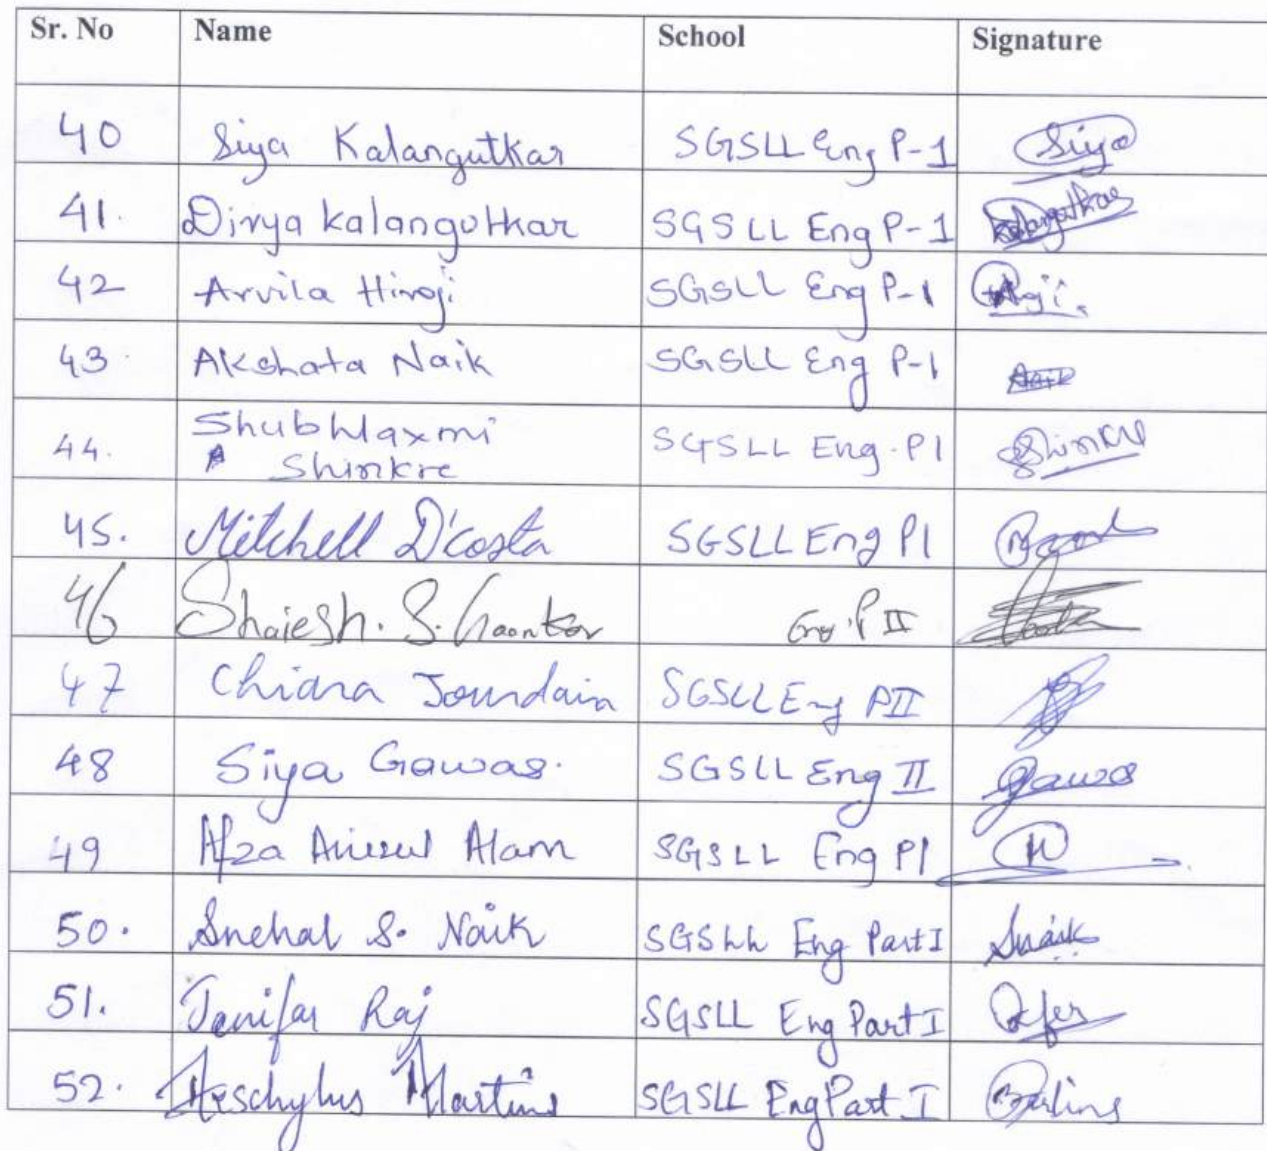 Sr. No Name School Signature
40 Siya Kalangutkar SGSLL Eng P-1 Siya
41. Divya kalangutkar SGSLL Eng P-1 Kalangutkar
42 Arvila Hiroji SGSLL Eng P-1
43 Akshata Naik SGSLL Eng P-1 Naik
44. Shubhlaxmi SGSLL Eng. P1 Shinkre
Shinkre
45. Mitchell D'costa SGSLL Eng P1
46 Shaiesh. S. Gaonkar Eng. P II
47 Chiara Jourdain SGSLL Eng PII
48 Siya Gawas. SGSLL Eng II Gawas
49 Afza Alam SGSLL Eng P1
50. Snehal S. Naik SGSLL Eng Part I Snaik
51. Janifar Raj SGSLL Eng Part I
52. Aeschylus Martins SGSLL Eng Part I